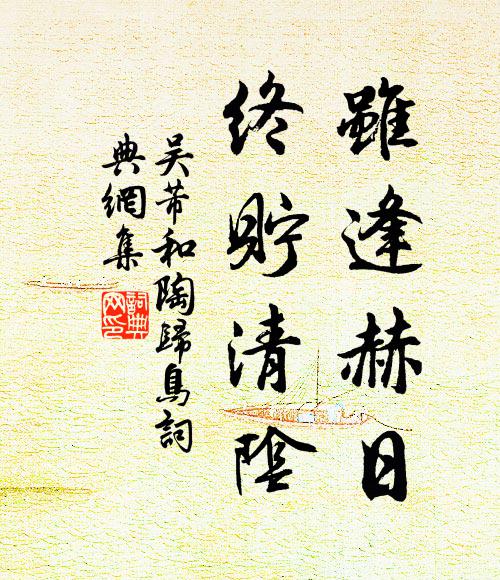 雖逢赫日
終貯清陰
吴芾和陶歸鳥詞
典網集
詞典网印